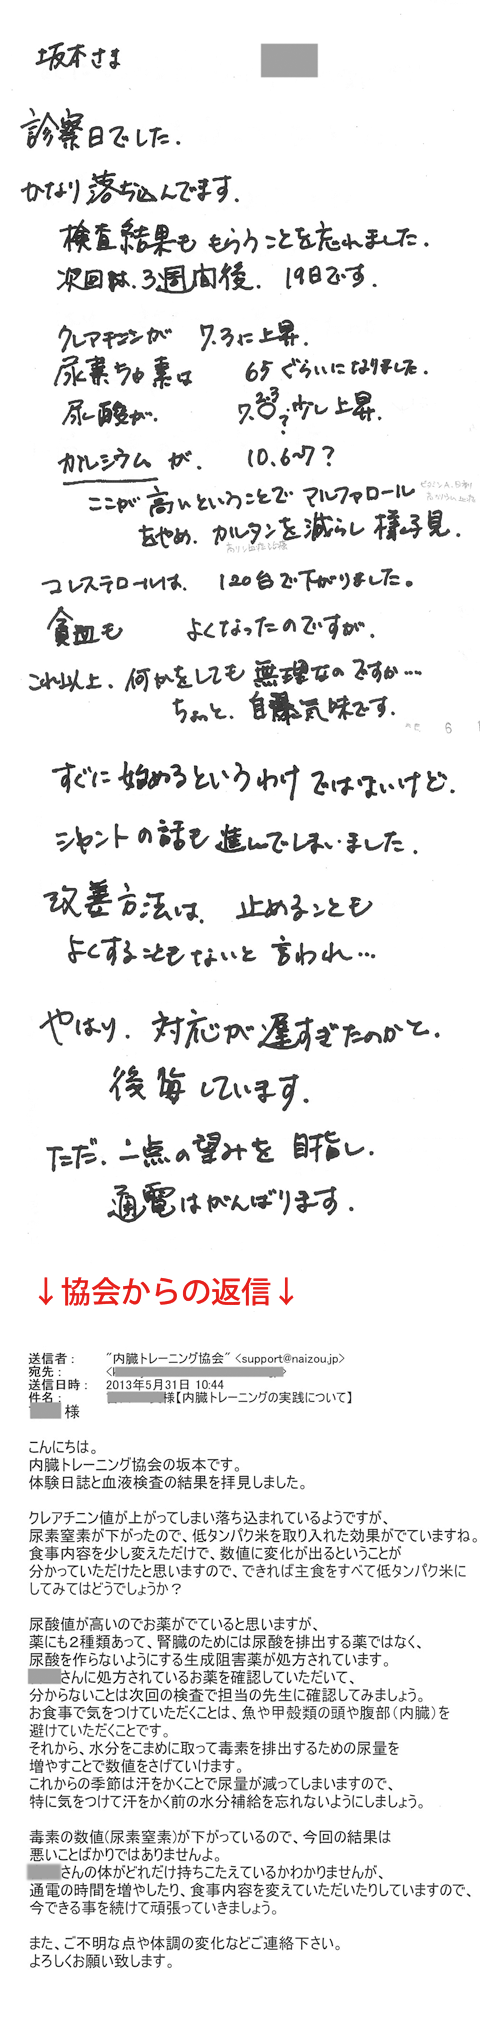 坂本さま
診察日でした.
かなり落ち込んでます.
検査結果ももらうことを忘れました.
次回は.3週間後. 19日です.
クレアチニンが 7.3に上昇.
尿素ちっ素は 65ぐらいになりました.
尿酸が. 7.
? 少し上昇.
カルシウム が. 10.6~7?
ここが高いということで マルファロール
をやめ. カルタンを減らし 様子見.
コレステロールは. 120台で下がりました。
貧血も よくなったのですが.
これ以上. 何かをしても無理なのですか…
ちょっと、自爆気味です.
6
すぐに始めるというわけではないけど.
シャントの話も進んでしまいました.
改善方法は. 止めることも
よくすることもないと言われ…
やはり. 対応が遅すぎたのかと.
後悔しています.
ただ. 一点の望みを目指し.
通電はがんばります.
↓協会からの返信↓
送信者: "内臓トレーニング協会" <support@naizou.jp>
宛先: <
送信日時: 2013年5月31日 10:44
件名: 様【内臓トレーニングの実践について】
様
こんにちは。
内臓トレーニング協会の坂本です。
体験日誌と血液検査の結果を拝見しました。
クレアチニン値が上がってしまい落ち込まれているようですが、
尿素窒素が下がったので、低タンパク米を取り入れた効果がでていますね。
食事内容を少し変えただけで、数値に変化が出るということが
分かっていただけたと思いますので、できれば主食をすべて低タンパク米に
してみてはどうでしょうか?
尿酸値が高いのでお薬がでていると思いますが、
薬にも2種類あって、腎臓のためには尿酸を排出する薬ではなく、
尿酸を作らないようにする生成阻害薬が処方されています。
さんに処方されているお薬を確認していただいて、
分からないことは次回の検査で担当の先生に確認してみましょう。
お食事で気をつけていただくことは、魚や甲殻類の頭や腹部(内臓)を
避けていただくことです。
それから、水分をこまめに取って毒素を排出するための尿量を
増やすことで数値をさげていけます。
これからの季節は汗をかくことで尿量が減ってしまいますので、
特に気をつけて汗をかく前の水分補給を忘れないようにしましょう。
毒素の数値(尿素窒素)が下がっているので、今回の結果は
悪いことばかりではありませんよ。
さんの体がどれだけ持ちこたえているかわかりませんが、
通電の時間を増やしたり、食事内容を変えていただいたりしていますので、
今できる事を続けて頑張っていきましょう。
また、ご不明な点や体調の変化などご連絡下さい。
よろしくお願い致します。